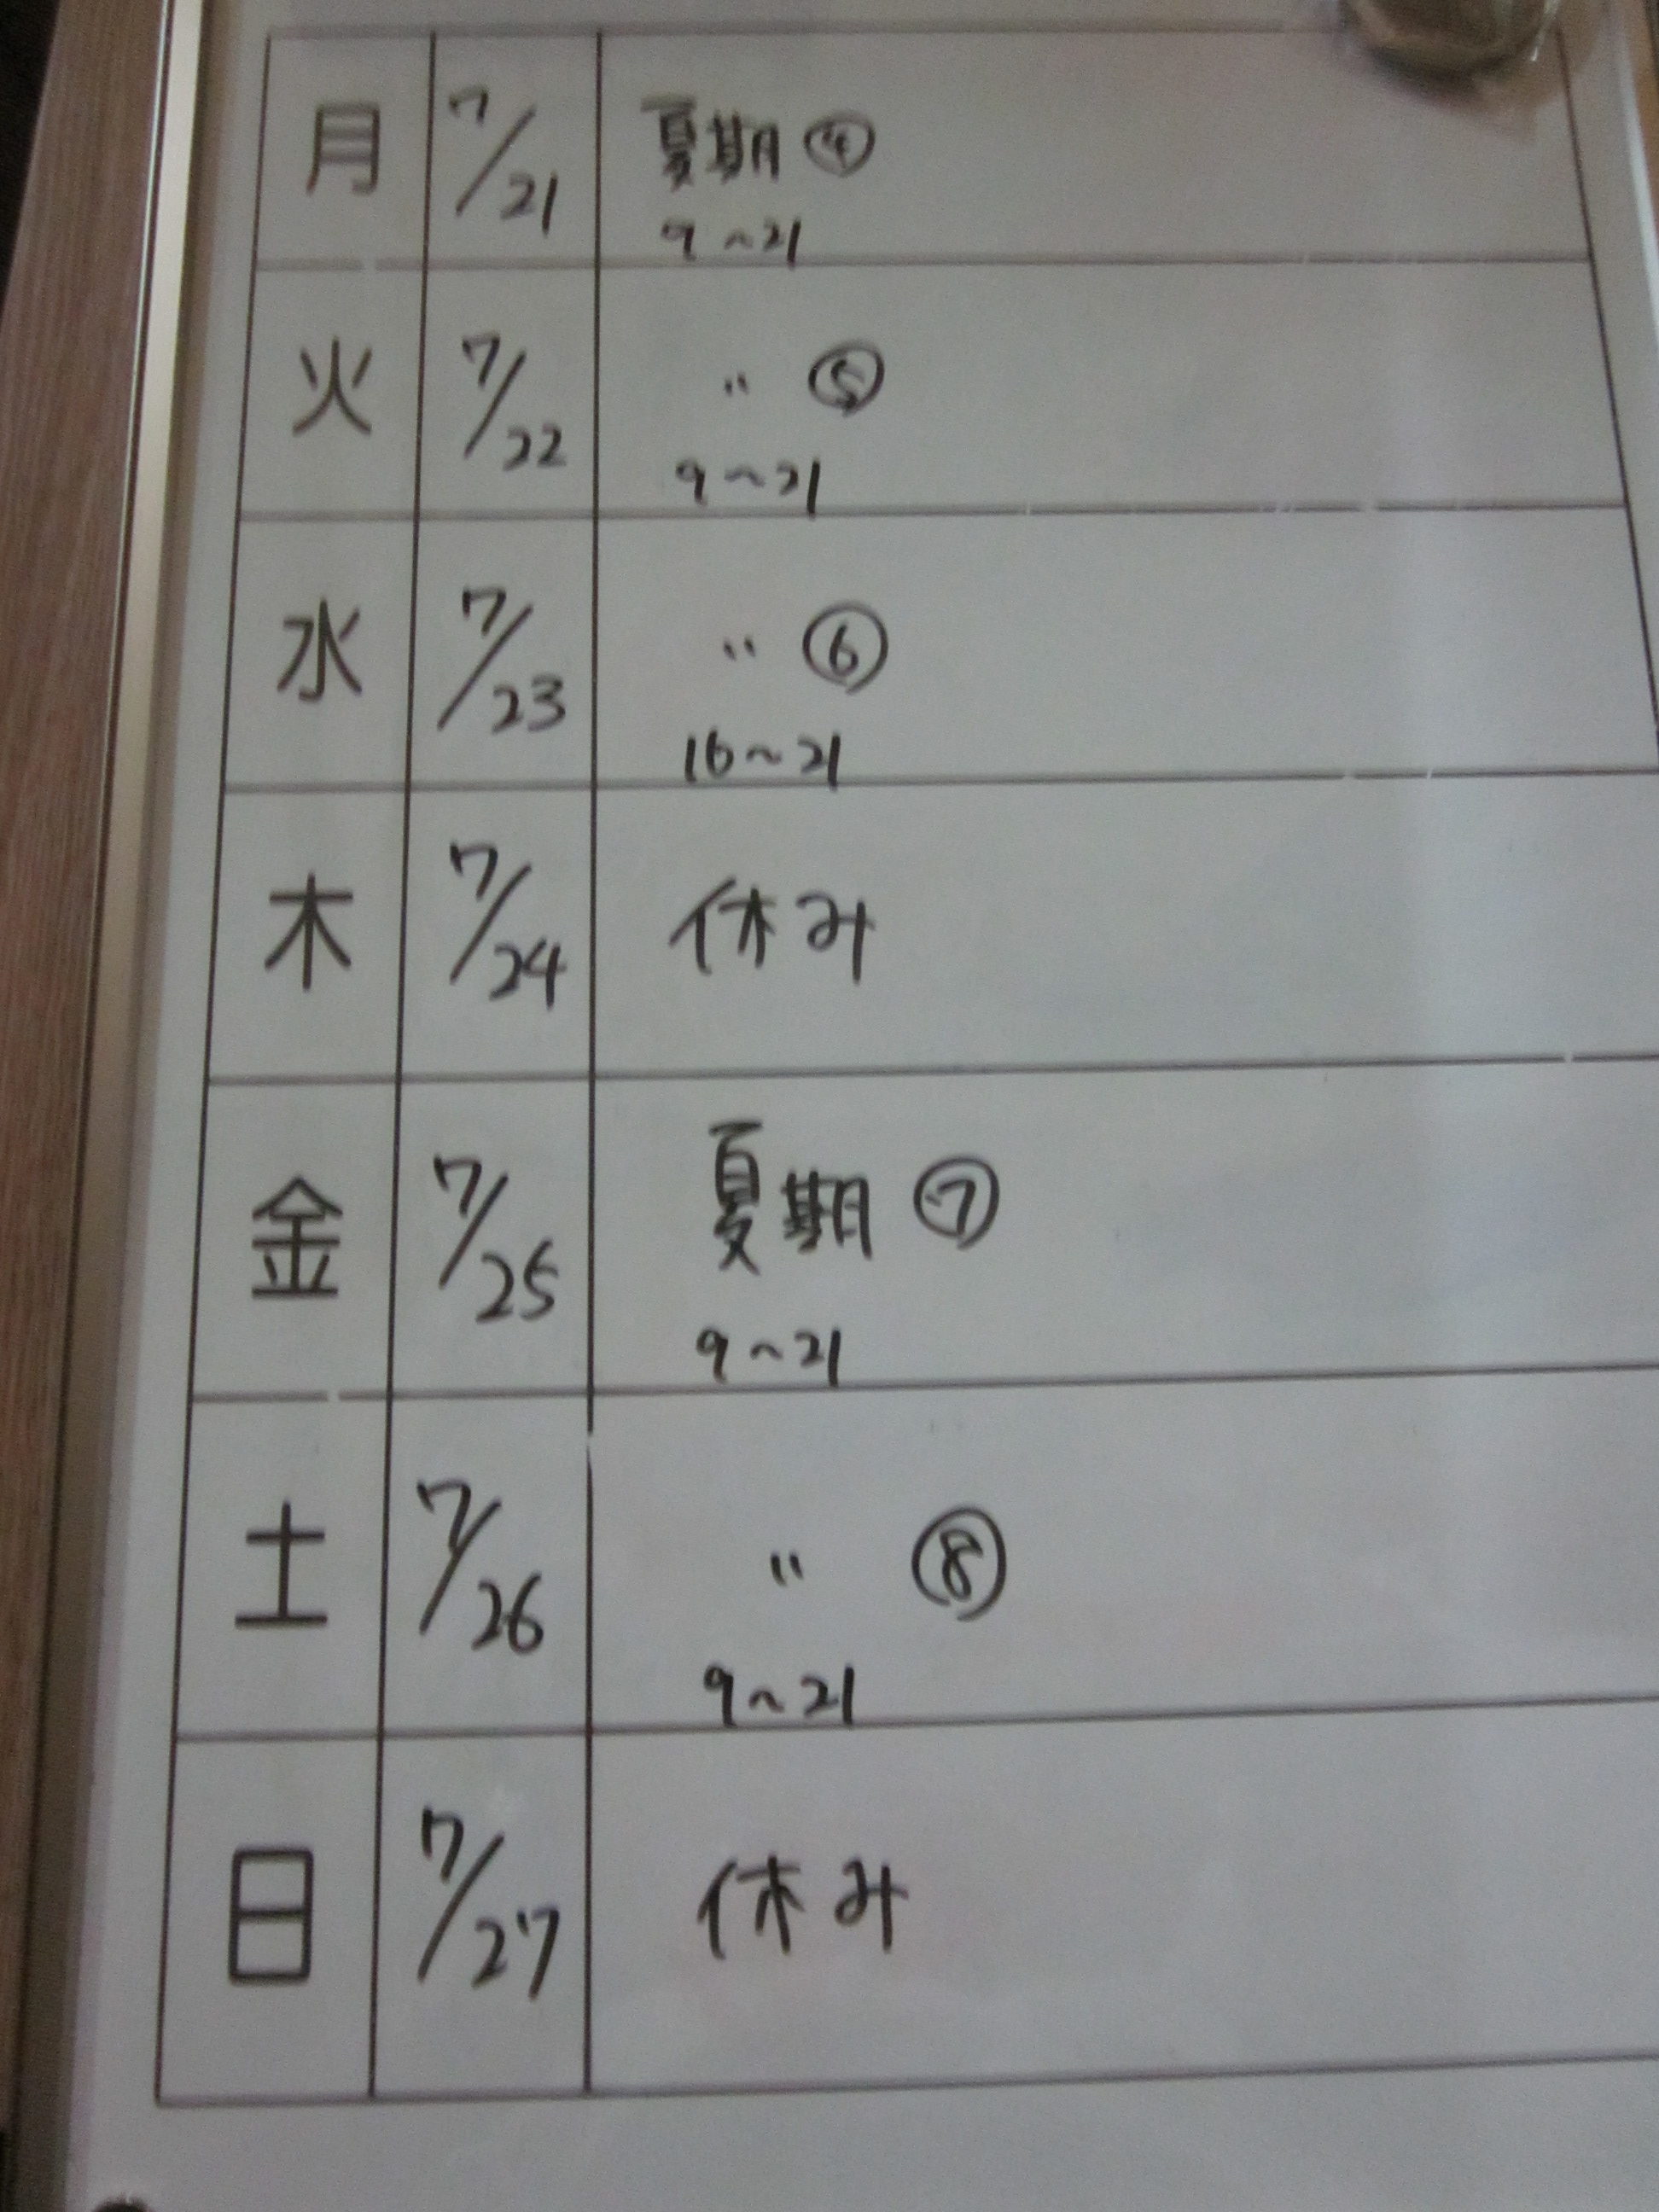 月 7/21 夏期 ④
9～21
火 7/22 〃 ⑤
9～21
水 7/23 〃 ⑥
16～21
木 7/24 休み
金 7/25 夏期 ⑦
9～21
土 7/26 〃 ⑧
9～21
日 7/27 休み